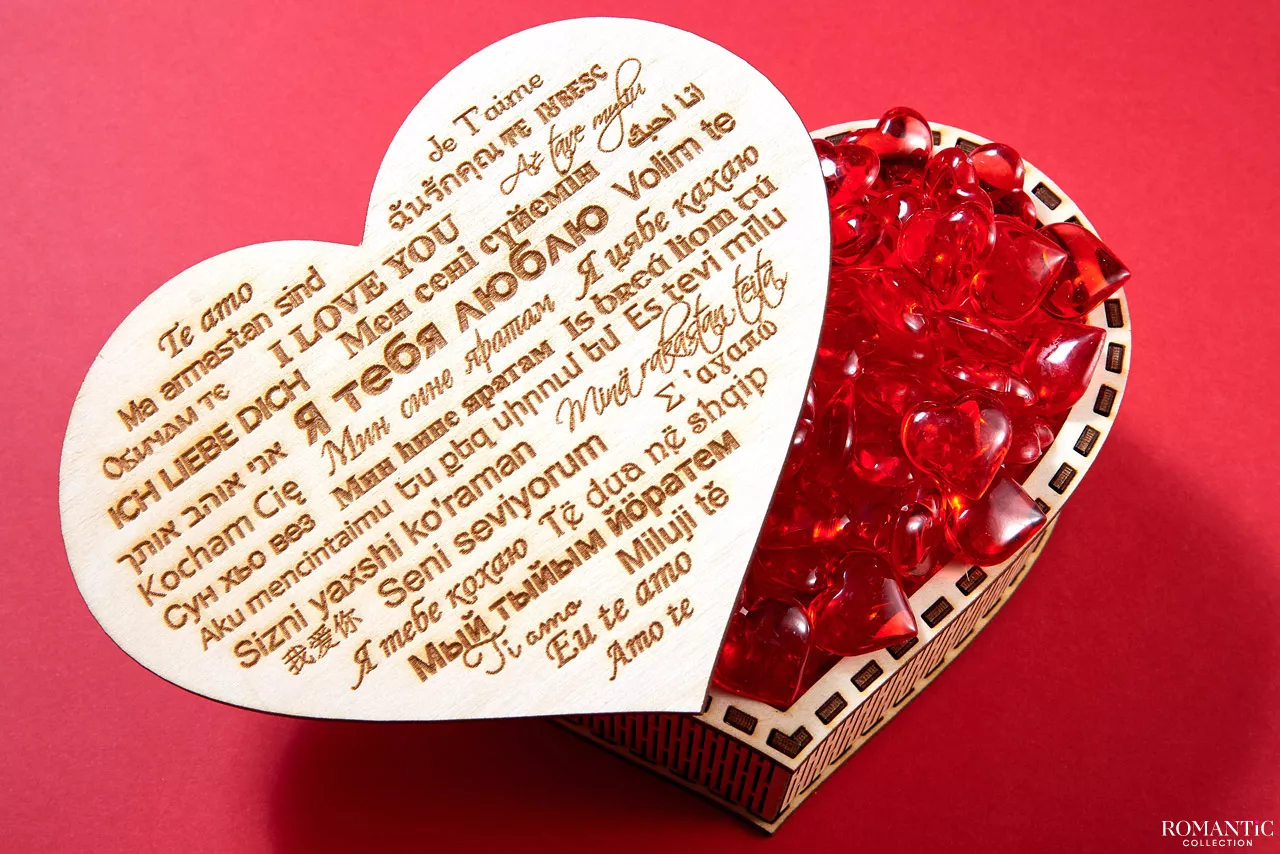 Je T'aime
ฉันรักคุณ
Te iubesc
Aš tave myliu
أنا أحبك
I LOVE YOU
Мен сені сүйемін
Volim te
Te amo
Ma armastan sind
Я тебя люблю
Я цябе кахаю
Обичам те
ICH LIEBE DICH
Мин сине яратам
Is breá liom tú
אני אוהב אותך
Мин һине яратам
Es tevi mīlu
Kocham Cię
Ես քեզ սիրում եմ
Minä rakastan teitä
Сун хьо веза
Aku mencintaimu
Σ'αγαπώ
Sizni yaxshi ko'raman
Seni seviyorum
Të dua në shqip
我爱你
Я тебе кохаю
Мый тыйым йӧратем
Miluji tě
Ti amo
Eu te amo
Amo te
ROMANTiC
COLLECTION